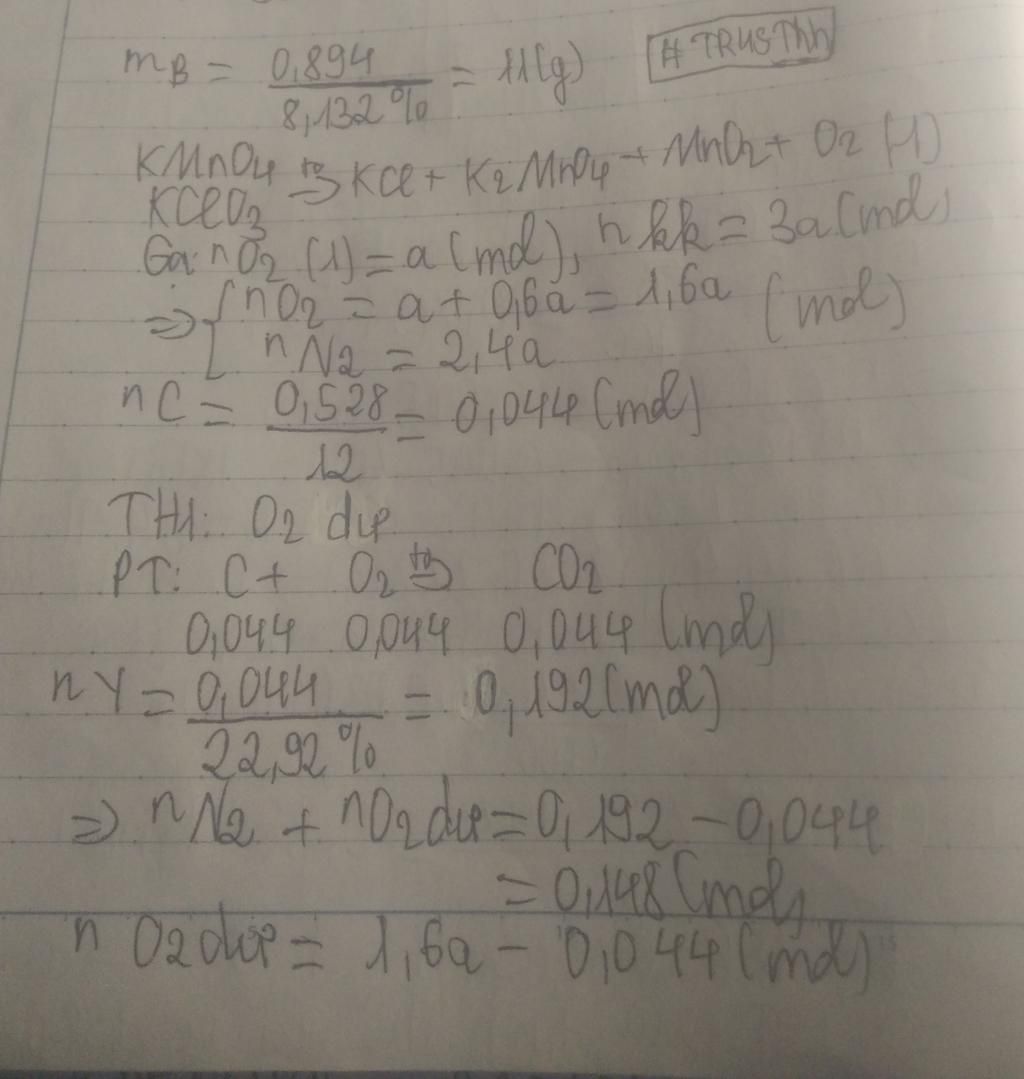 mB = 0,894 / 8,132% = 11(g) #TRUSThh
KMnO4 t°→ KCl + K2MnO4 + MnO2 + O2 (1)
KClO3
Gọi nO2 (1) = a (mol), n kk = 3a (mol)
=> { nO2 = a + 0,6a = 1,6a (mol)
nN2 = 2,4a
nC = 0,528 / 12 = 0,044 (mol)
TH1: O2 dư
PT: C + O2 t°→ CO2
0,044 0,044 0,044 (mol)
nY = 0,044 / 22,92% = 0,192 (mol)
=> nN2 + nO2 dư = 0,192 - 0,044
= 0,148 (mol)
n O2 dư = 1,6a - 0,044 (mol)